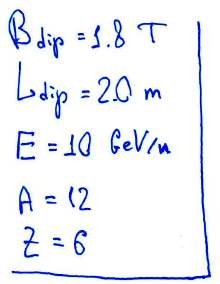 B dip = 1.8 T
L dip = 2.0 m
E = 10 GeV/n
A = 12
Z = 6